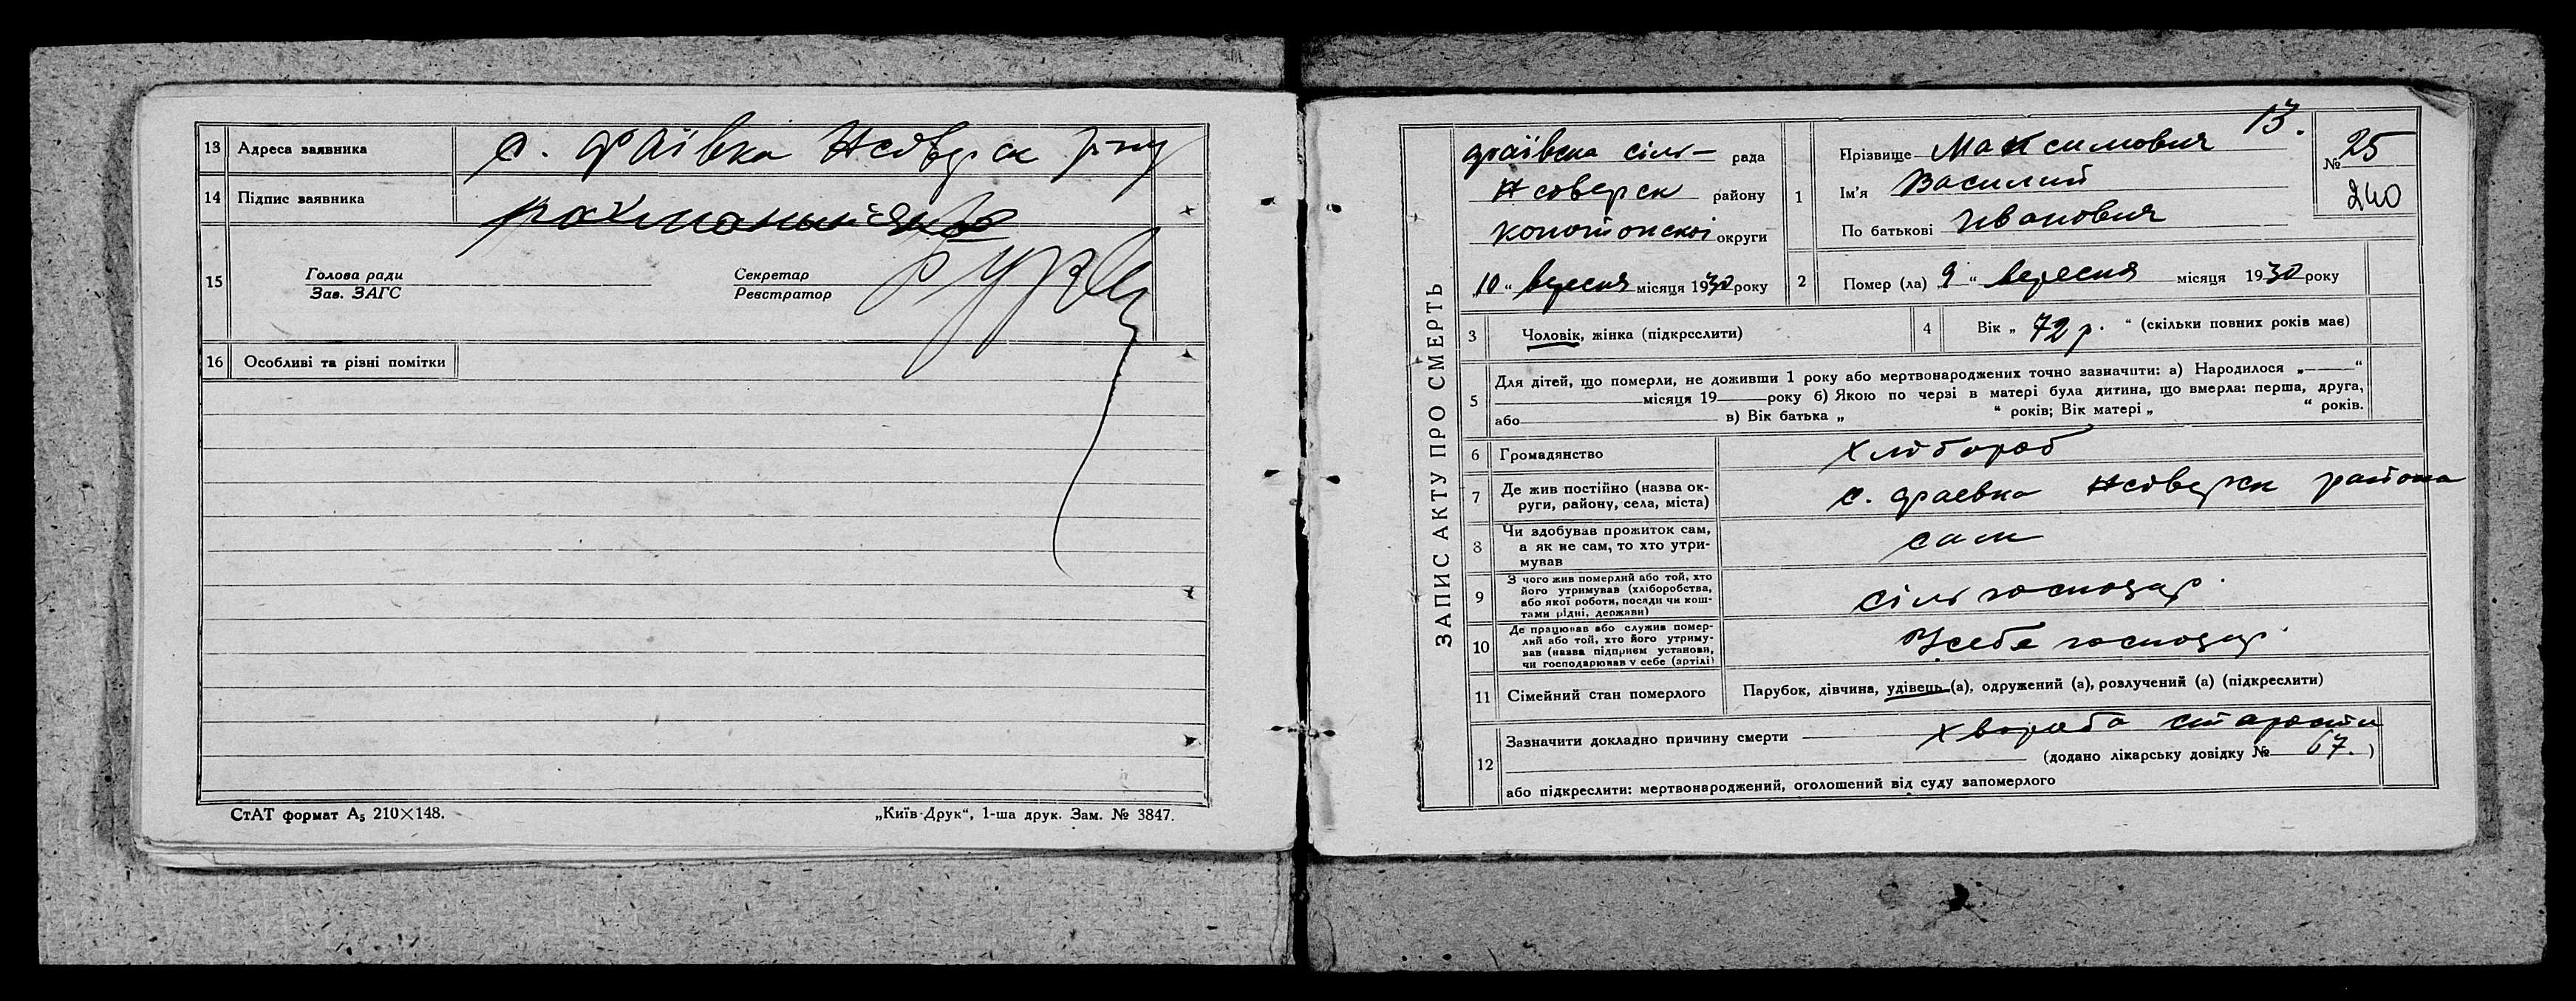 13 Адреса заявника с. Фаївка Нсіверск р-ну
14 Підпис заявника
15
Голова ради
Зав. ЗАГС
Секретар
Реєстратор
16 Особливі та різні помітки
СтАТ формат А₅ 210×148.
„Київ-Друк“, 1-ша друк. Зам. № 3847.
ЗАПИС АКТУ ПРО СМЕРТЬ
13.
Фаївска сіль- рада
Нсіверск району
Конотопскої округи
„10“ вересня місяця 1930 року
1
Прізвище Максимович
Ім'я Василий
По батькові Иванович
№ 25
240
2 Помер (ла) „9“ вересня місяця 1930 року
3 Чоловік, жінка (підкреслити)
4 Вік „72 р.“ (скільки повних років має)
5
Для дітей, що померли, не доживши 1 року або мертвонароджених точно зазначити: а) Народилося „ “
місяця 19 року б) Якою по черзі в матері була дитина, що вмерла: перша, друга,
або в) Вік батька „ “ років; Вік матері „ “ років.
6 Громадянство хлібороб
7 Де жив постійно (назва ок-
руги, району, села, міста)
с. Фаевка Нсіверск района
8 Чи здобував прожиток сам,
а як не сам, то хто утри-
мував
сам
9 З чого жив померлий або той, хто
його утримував (хліборобства,
або якої роботи, посади чи кош-
тами рідні, держави)
сіль господар.
10 Де працював або служив помер-
лий або той, хто його утриму-
вав (назва підприєм установи,
чи господарював у себе (артілі)
У себе господар.
11 Сімейний стан померлого Парубок, дівчина, удівець (а), одружений (а), розлучений (а) (підкреслити)
12
Зазначити докладно причину смерти хвороба старости
(додано лікарську довідку № 67.)
або підкреслити: мертвонароджений, оголошений від суду запомерлого